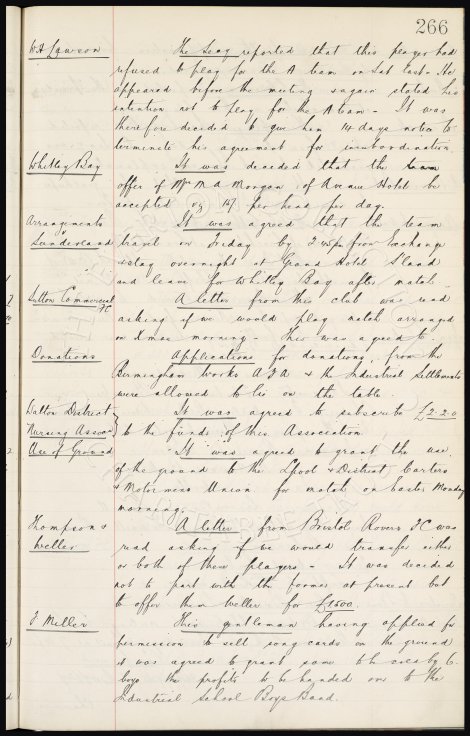 266
W A Lawson The Secy reported that this player had
refused to play for the A team on Sat last - He
appeared before the meeting & again stated his
intention not to play for the A team - It was
therefore decided to give him 14 days notice to
terminate his agreement for insubordination
Whitley Bay It was decided that the
offer of Mr M A Morgan, of Avenue Hotel be
accepted vz 14/- per head per day.
Arrangements It was agreed that the team
Sunderland travel on Friday by 2.45pm from Exchange
& stay overnight at Grand Hotel S'land
and leave for Whitley Bay after match.
Sutton Commercial FC A letter from this club was read
asking if we would play match arranged
on Xmas morning - This was agreed to.
Donations Applications for donations, from the
Birmingham Works A F A & the Industrial Settlements
were allowed to lie on the table.
Walton District It was agreed to subscribe £2-2-0
Nursing Assocn to the funds of this Association.
Use of Ground It was agreed to grant the use
of the ground to the Lpool & District Carters
& Motormens Union for match on Easter Monday
morning.
Thompson & A letter from Bristol Rovers FC was
Weller read asking if we would transfer either
or both of these players - It was decided
not to part with the former at present but
to offer them Weller for £1500.
J Miller This gentleman having applied for
permission to sell song cards on the ground
it was agreed to grant same to be sold by 6
boys the profits to be handed over to the
Industrial School Boys Band.